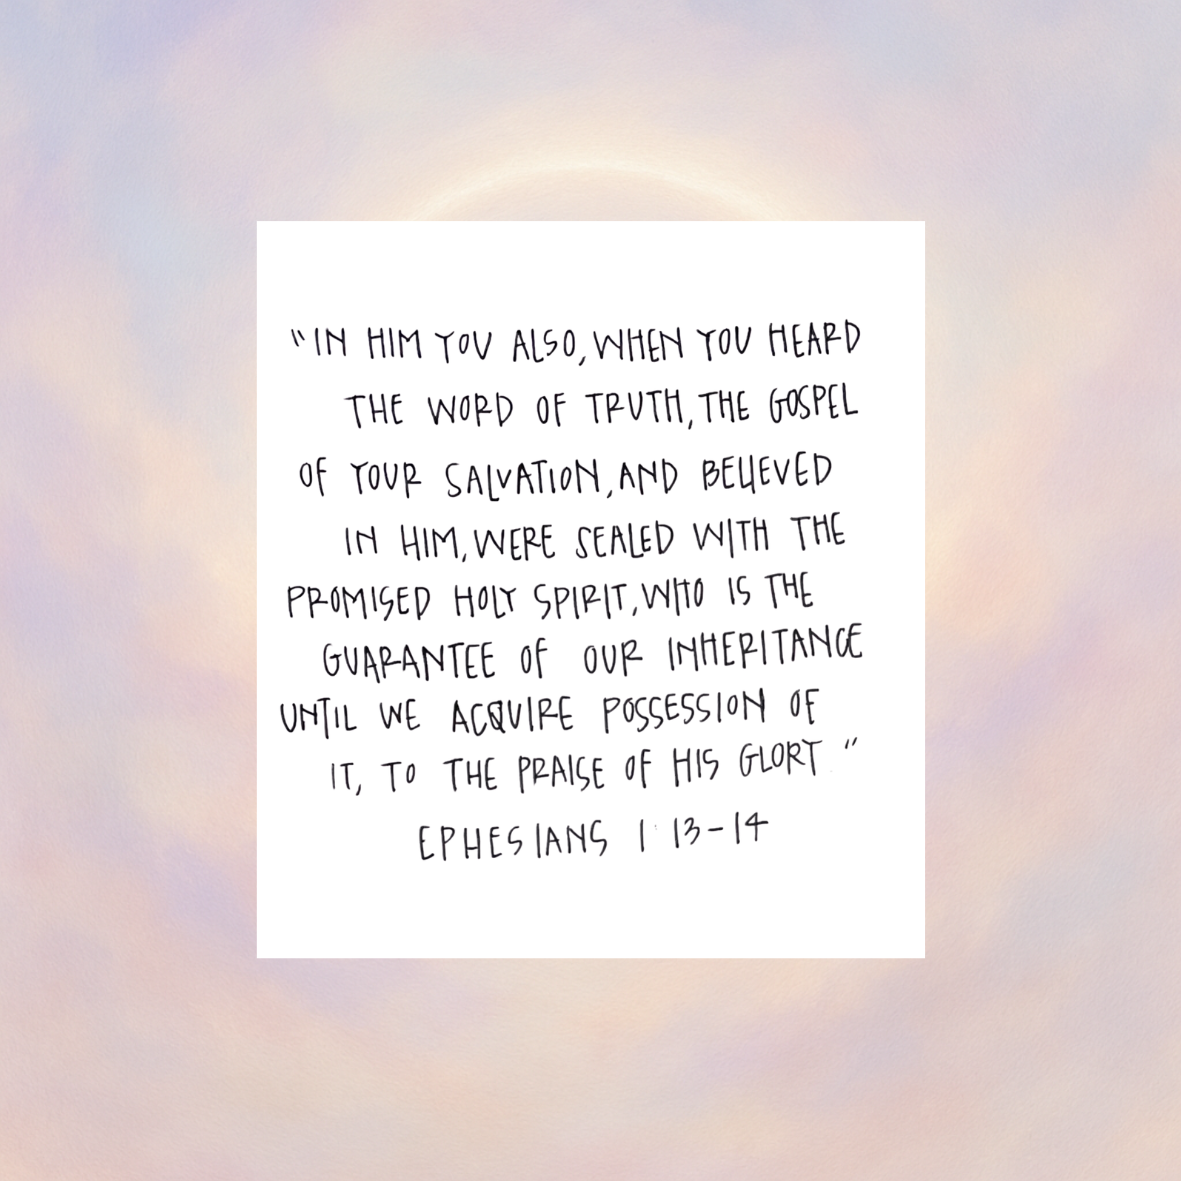 "IN HIM YOU ALSO, WHEN YOU HEARD
THE WORD OF TRUTH, THE GOSPEL
OF YOUR SALVATION, AND BELIEVED
IN HIM, WERE SEALED WITH THE
PROMISED HOLY SPIRIT, WHO IS THE
GUARANTEE OF OUR INHERITANCE
UNTIL WE ACQUIRE POSSESSION OF
IT, TO THE PRAISE OF HIS GLORY "
EPHESIANS 1:13-14